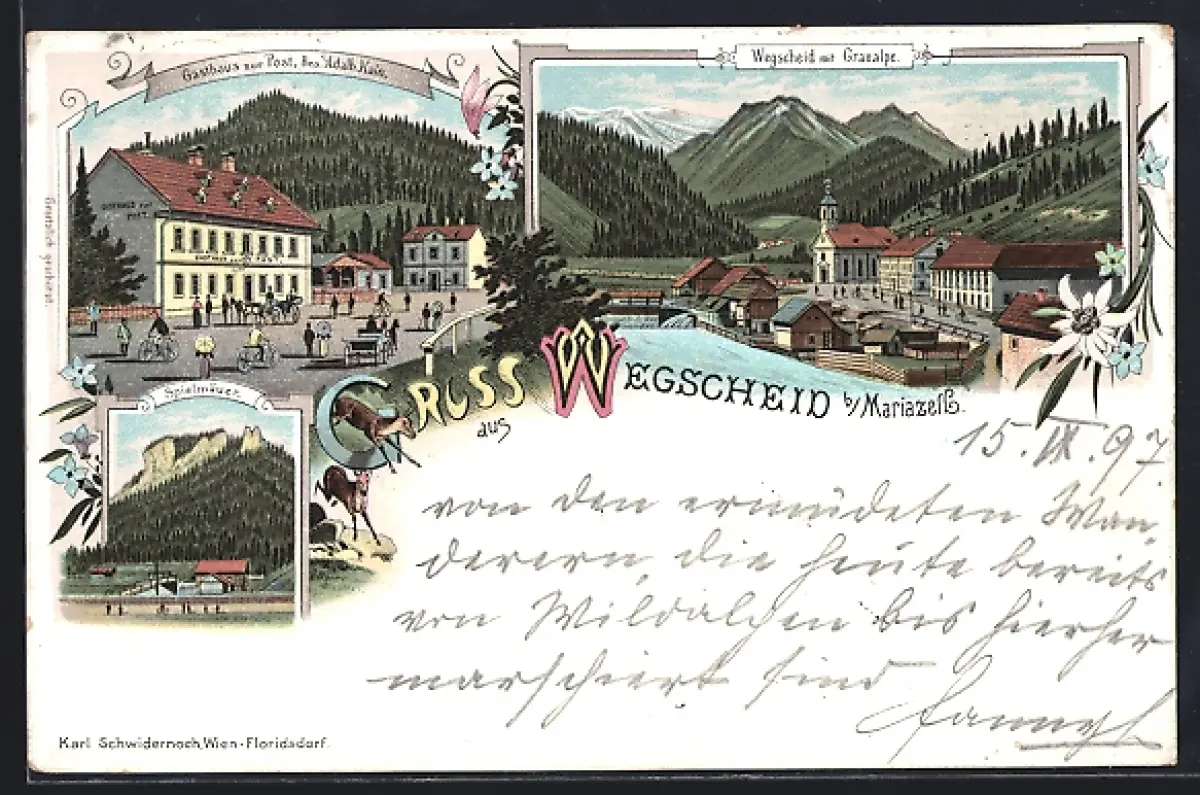 Gasthaus zur Post, Bes. Adalb. Kain.
Wegscheid mit Graualpe.
GASTHAUS ZUR
POST.
Gesetzlich geschützt.
Spielmäuer.
GRUSS
aus
WEGSCHEID b/Mariazell.
15. IX. 97
von den ermüdeten Wan-
derern, die heute bereits
von Wildalpen bis hierher
marschiert sind
Karl Schwidernoch, Wien-Floridsdorf.